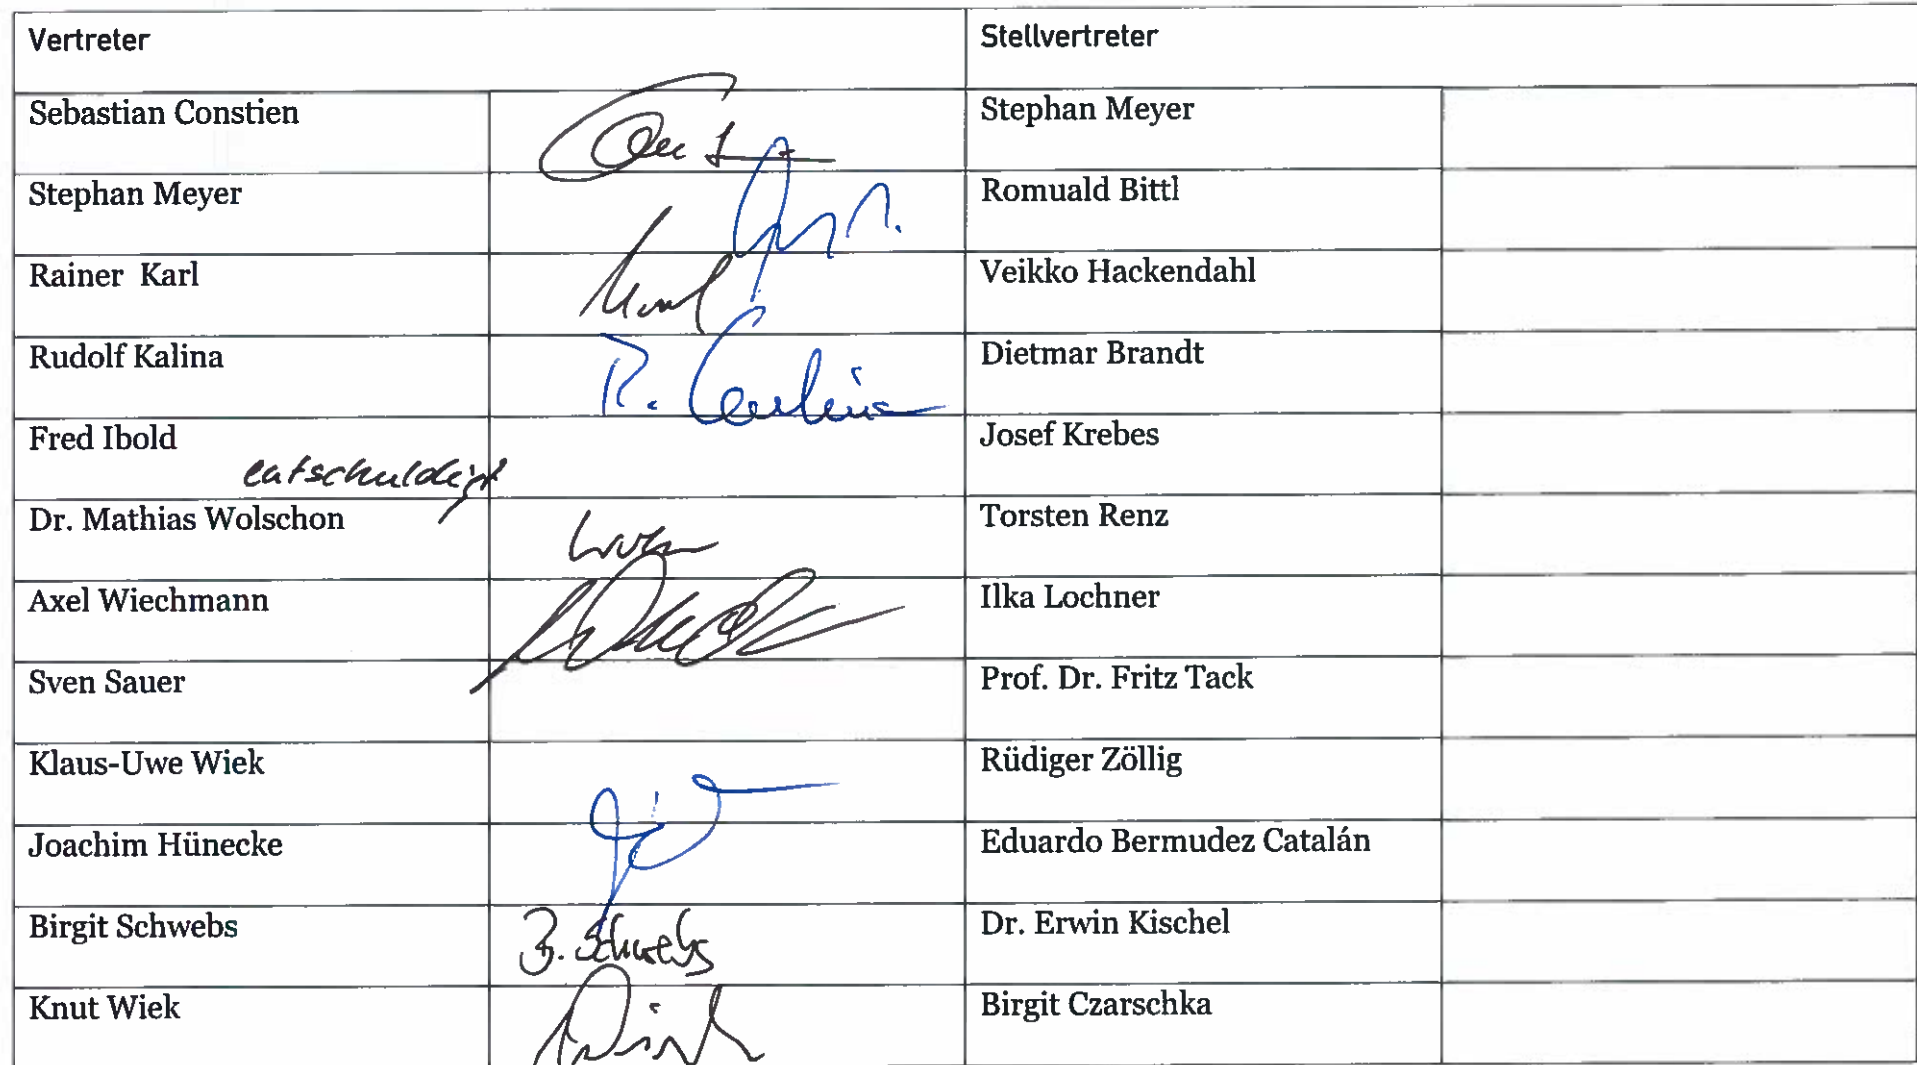 Vertreter Stellvertreter
Sebastian Constien Stephan Meyer
Stephan Meyer Romuald Bittl
Rainer Karl Veikko Hackendahl
Rudolf Kalina R. Kalina Dietmar Brandt
Fred Ibold entschuldigt Josef Krebes
Dr. Mathias Wolschon Torsten Renz
Axel Wiechmann Ilka Lochner
Sven Sauer Prof. Dr. Fritz Tack
Klaus-Uwe Wiek Rüdiger Zöllig
Joachim Hünecke Eduardo Bermudez Catalán
Birgit Schwebs B. Schwebs Dr. Erwin Kischel
Knut Wiek Birgit Czarschka